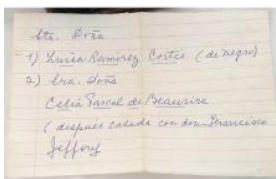 Sta. Doña
1) Luisa Ramirez Cortés (de negro)
2) Sra. Doña
Celia Pascal de Beausire
(después casada con don Francisco
Jeffery